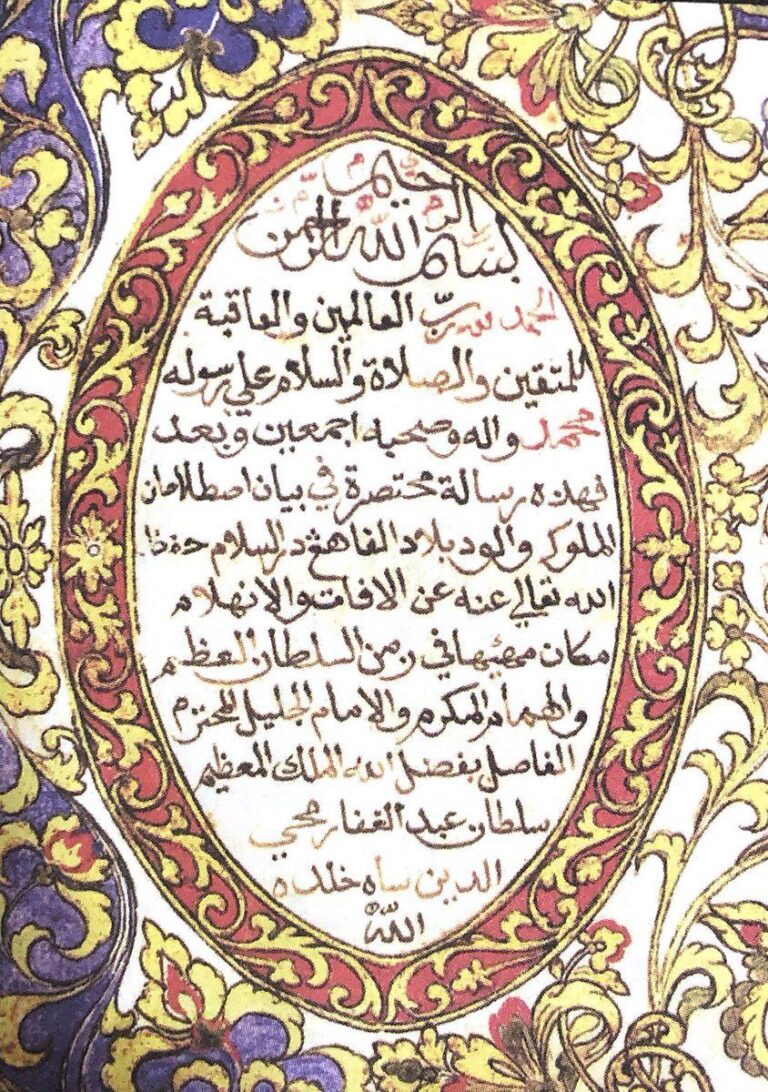 بسم الله الرحمن الرحيم
الحمد لله ربّ العالمين والعاقبة
للمتقين والصلاة والسلام علي رسوله
محمد واله وصحبه اجمعين وبعد
فهذه رسالة مختصرة في بيان اصطلاحان
الملوك والود بلاد الفاهڠ دار السلام حفظ
الله تعالي عنه عن الافات والانهلام
مكان في زمن السلطان العظيم
والهمام المكرم والامام الجليل المحترم
الفاصل بفضل الله الملك المعظم
سلطان عبد الغفار محي
الدين ساه خلده
الله